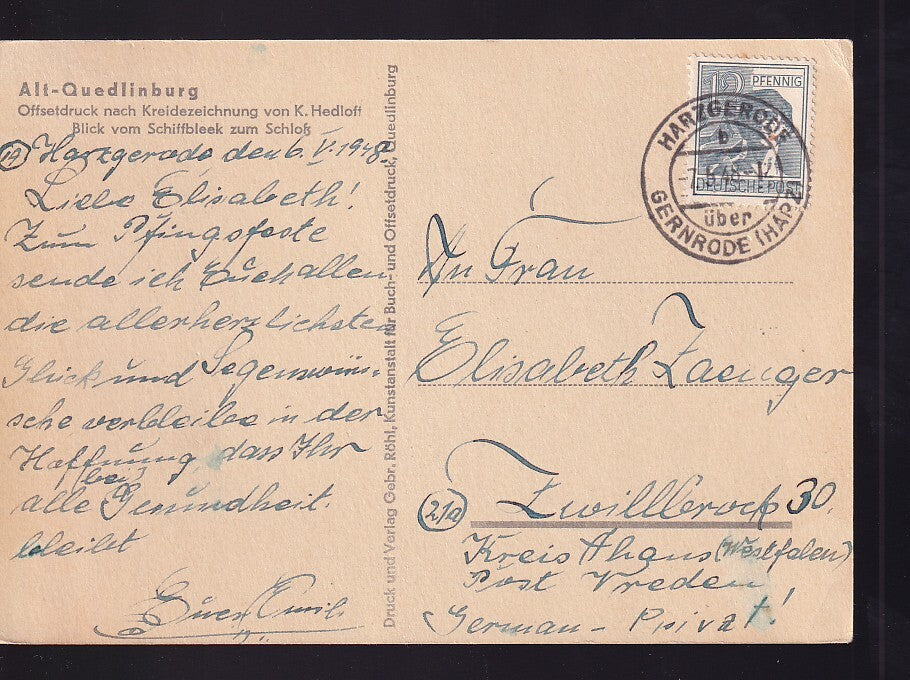 Alt-Quedlinburg
Offsetdruck nach Kreidezeichnung von K. Hedloff
Blick vom Schiffbleek zum Schloß
(19) Harzgerode den 6. V. 1948
Liebe Elisabeth!
Zum Pfingsfeste
sende ich Euch allen
die allerherzlichsten
Glück und Segenswün-
sche verbleibe in der
Hoffnung, dass Ihr
(bei)
alle Gesundheit.
bleibet
Euer Emil
Druck und Verlag Gebr. Röhl, Kunstanstalt für Buch- und Offsetdruck, Quedlinburg
12 PFENNIG
DEUTSCHE POST
HARZGERODE
b
7.5.48
über
GERNRODE (HARZ)
An Frau
Elisabeth Zaenger
(21a) Zwillbrock 30.
Kreis Ahaus (Westfalen)
Post Vreden!
German - Privat!